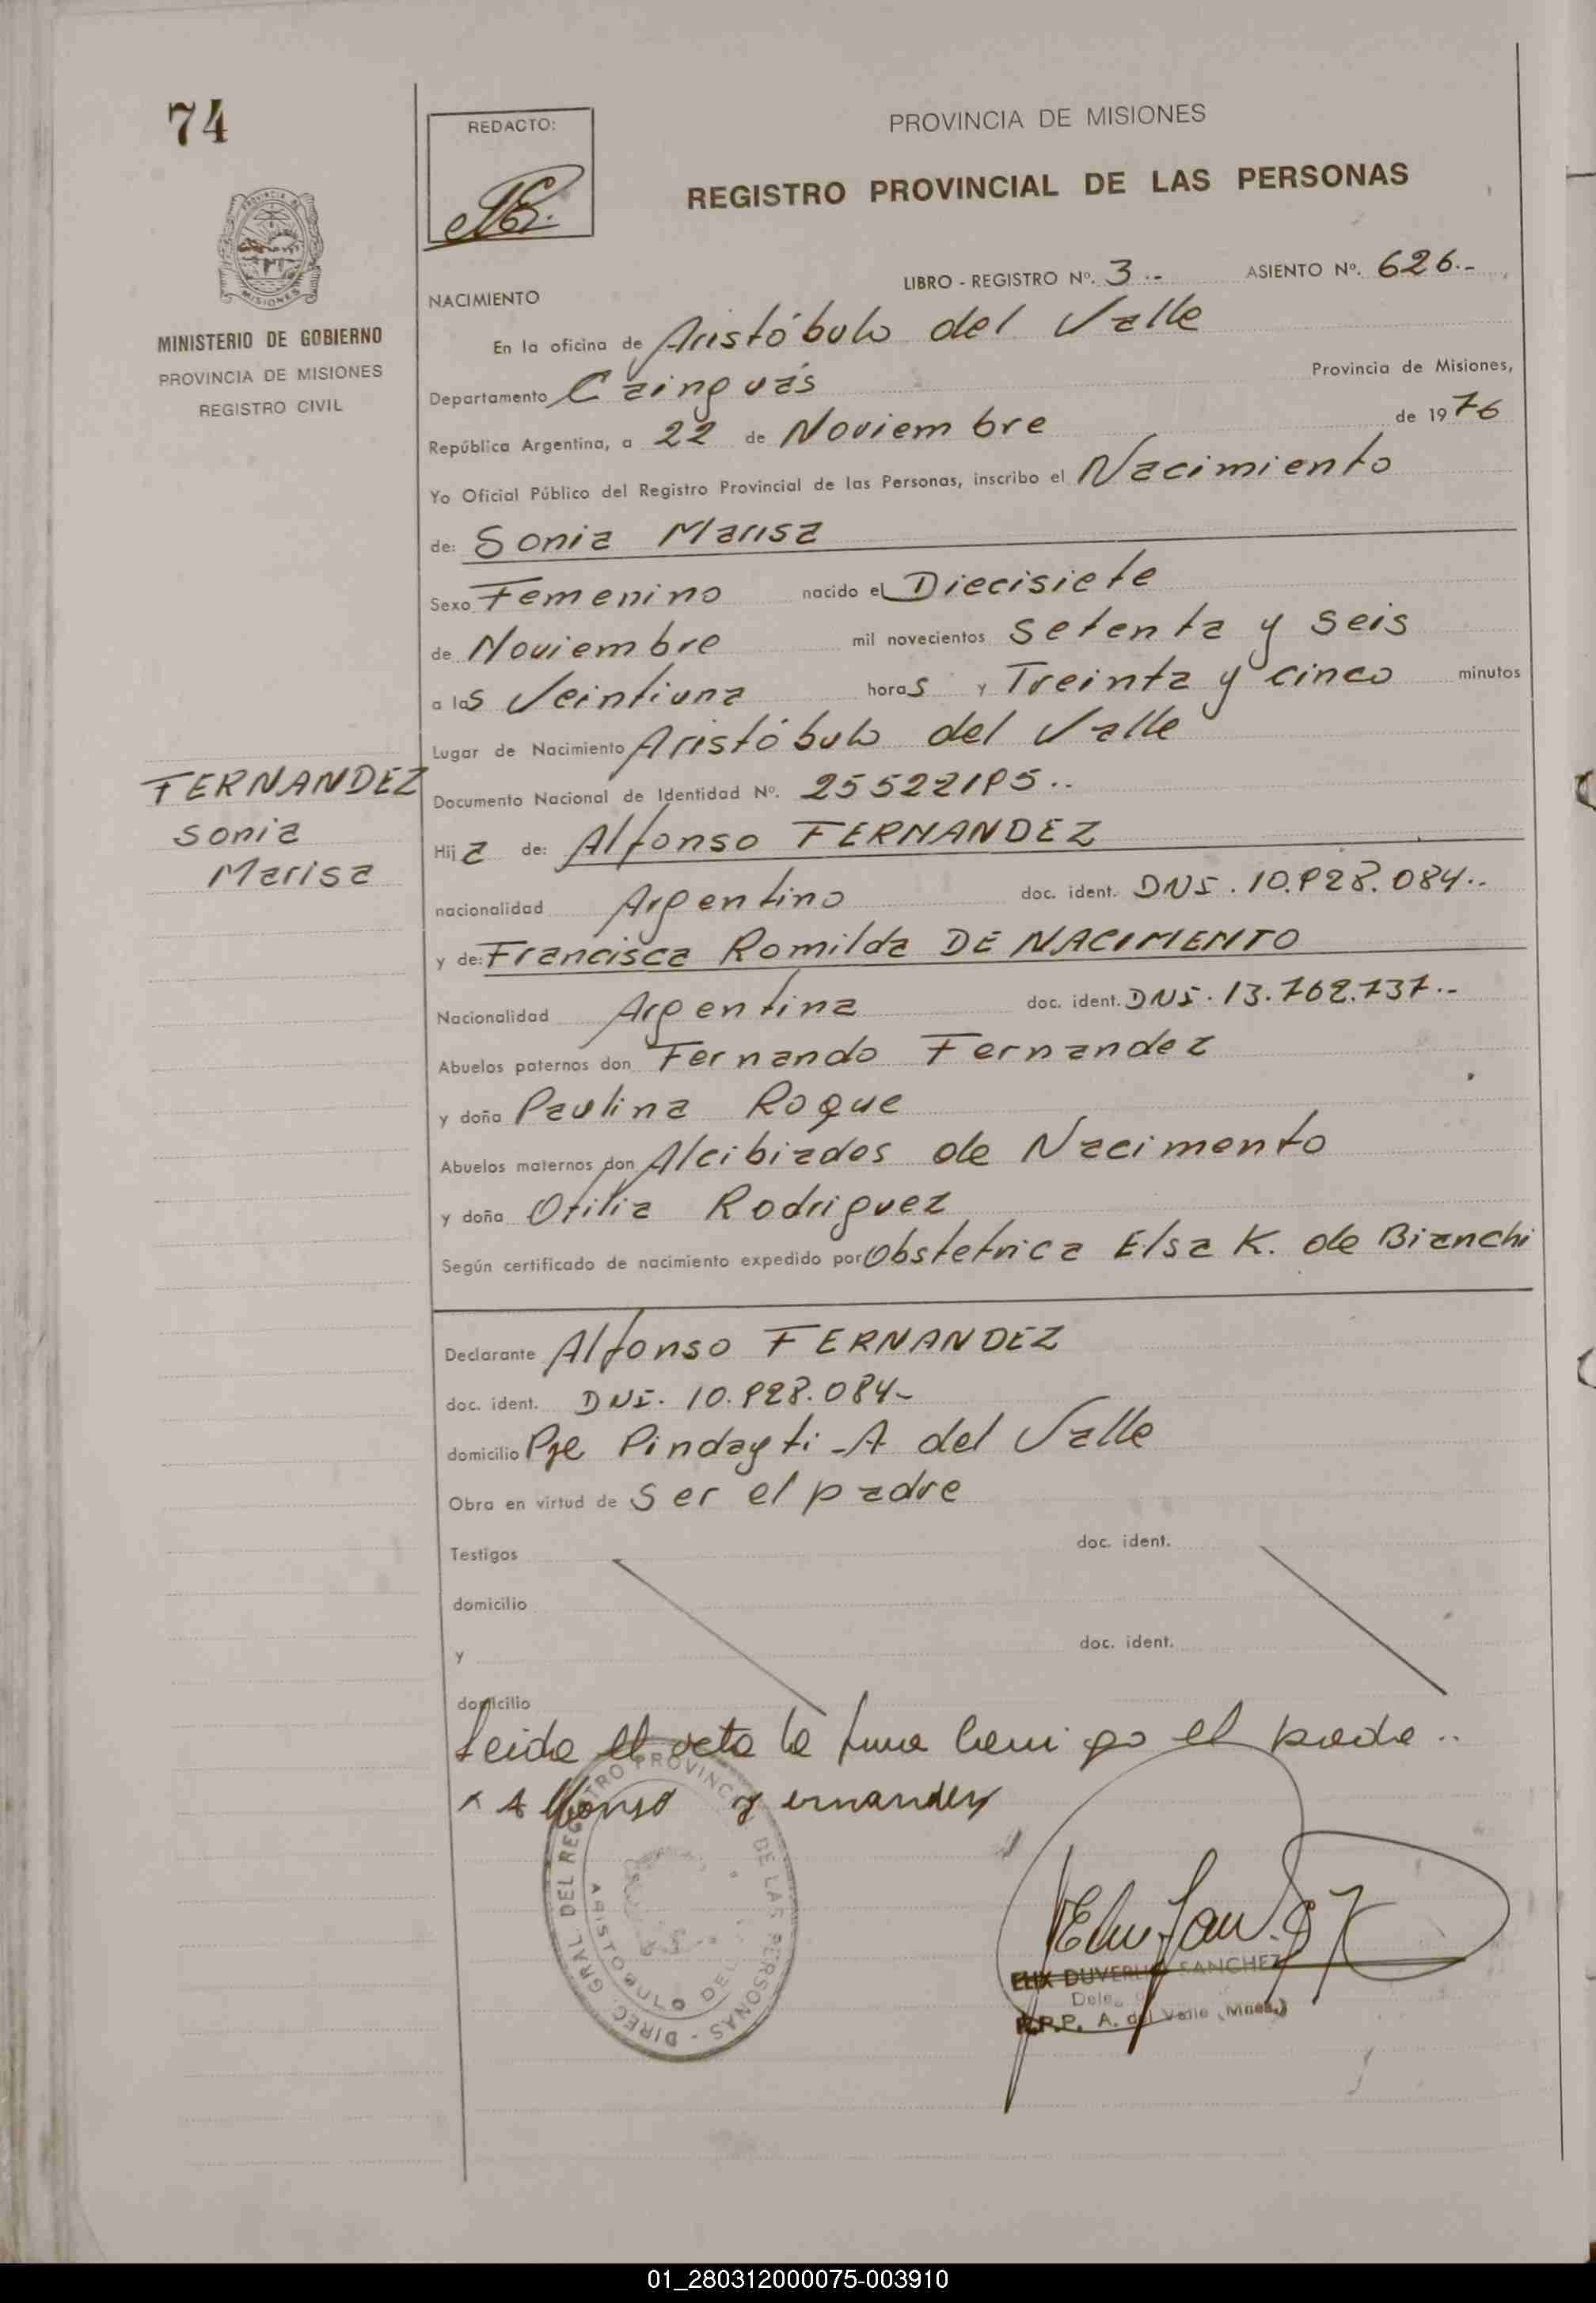 74
REDACTO:
PROVINCIA DE MISIONES
REGISTRO PROVINCIAL DE LAS PERSONAS
MISIONES
MINISTERIO DE GOBIERNO
PROVINCIA DE MISIONES
REGISTRO CIVIL
LIBRO - REGISTRO Nº. 3.- ASIENTO Nº. 626.-
NACIMIENTO
En la oficina de Aristóbulo del Valle
Departamento Cainguás Provincia de Misiones,
República Argentina, a 22 de Noviembre de 1976
Yo Oficial Público del Registro Provincial de las Personas, inscribo el Nacimiento
de: Sonia Marisa
Sexo Femenino nacido el Diecisiete
de Noviembre mil novecientos setenta y seis
a las Veintiuna horas y Treinta y cinco minutos
Lugar de Nacimiento Aristóbulo del Valle
FERNANDEZ
Sonia
Marisa
Documento Nacional de Identidad Nº. 25522195..
Hija de: Alfonso FERNANDEZ
nacionalidad Argentino doc. ident. DNI. 10.928.084..
y de: Francisca Romilda DE NACIMENTO
Nacionalidad Argentina doc. ident. DNI. 13.762.737.-
Abuelos paternos don Fernando Fernandez
y doña Paulina Roque
Abuelos maternos don Alcibiades de Nacimento
y doña Otilia Rodriguez
Según certificado de nacimiento expedido por Obstetrica Elsa K. de Bianchi
Declarante Alfonso FERNANDEZ
doc. ident. DNI. 10.928.084-
domicilio Pje Pindayti - A del Valle
Obra en virtud de Ser el padre
Testigos doc. ident.
domicilio
y doc. ident.
domicilio
Leida el acta la firma conmigo el padre..
x Alfonso Fernandez
DIREC. GRAL. DEL REGISTRO PROVINCIAL DE LAS PERSONAS -
ARISTOBULO DEL
ELIX DUVERLI SANCHEZ
R.P.P. A. del Valle (Mnes.)
01_280312000075-003910